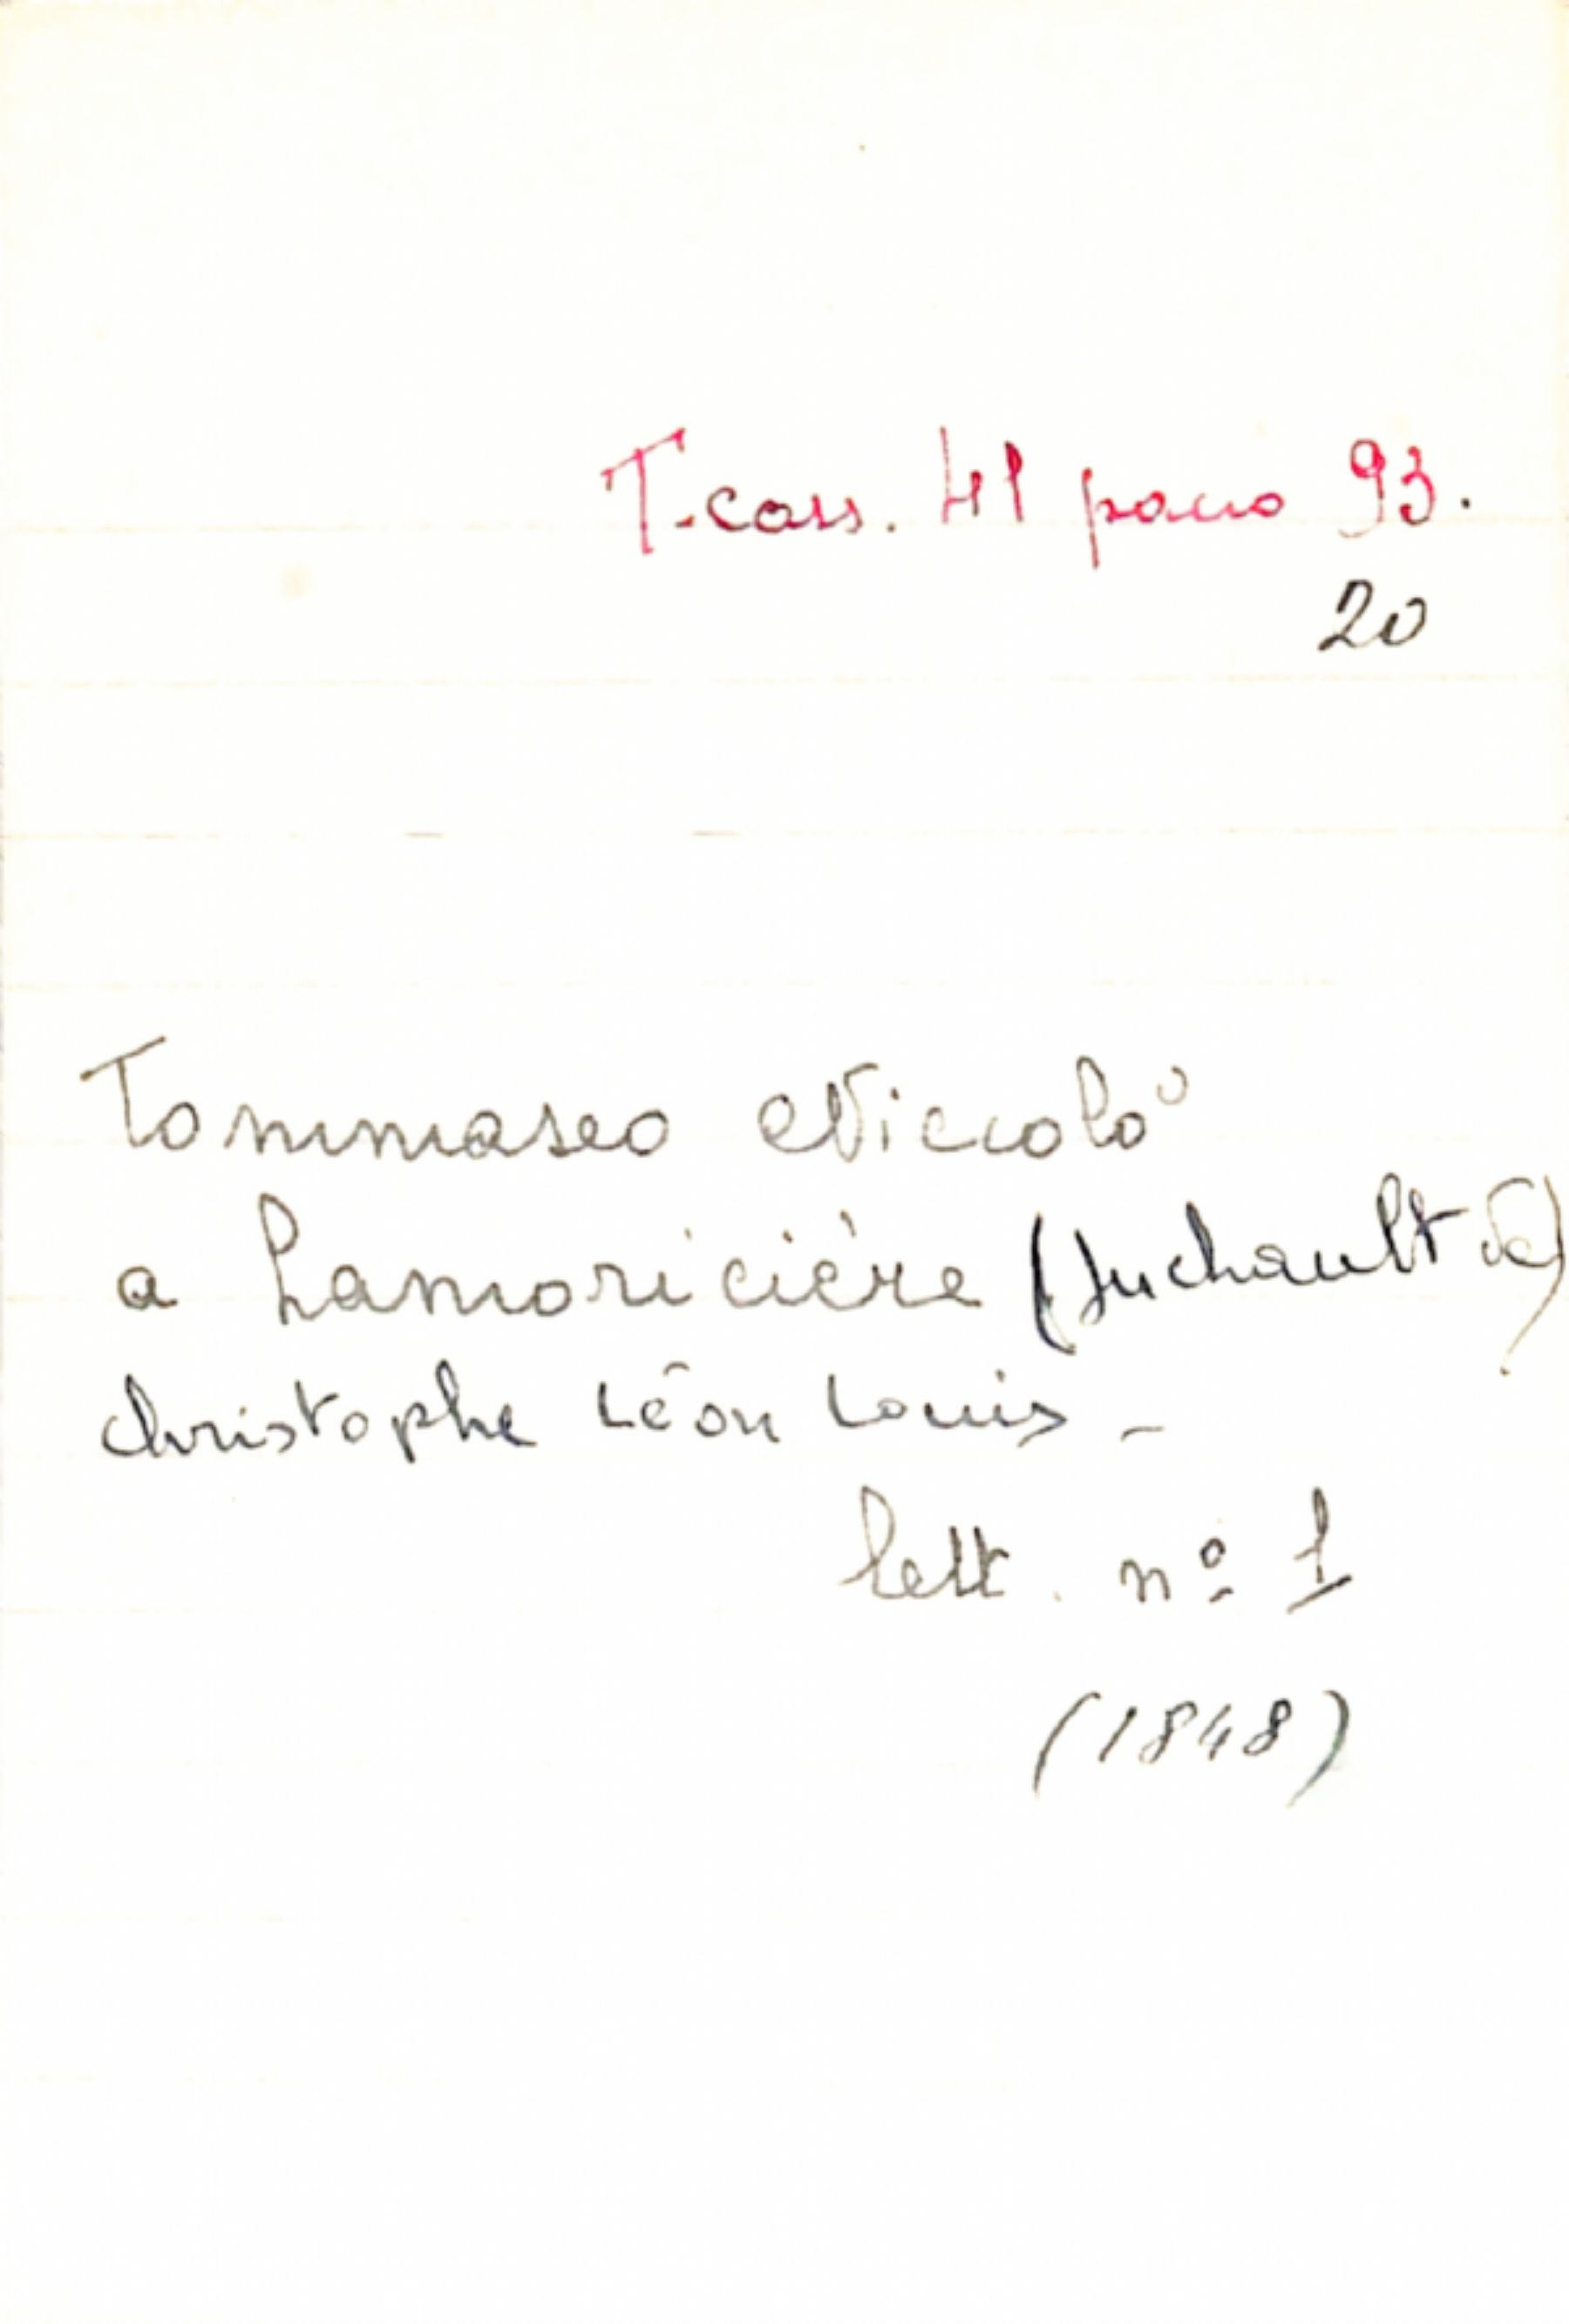 T. cass. 41 pacco 93.
20
Tommaseo Niccolò
a Lamoricière (Juchault de)
Christophe Léon Louis -
lett. nº 1
(1848)